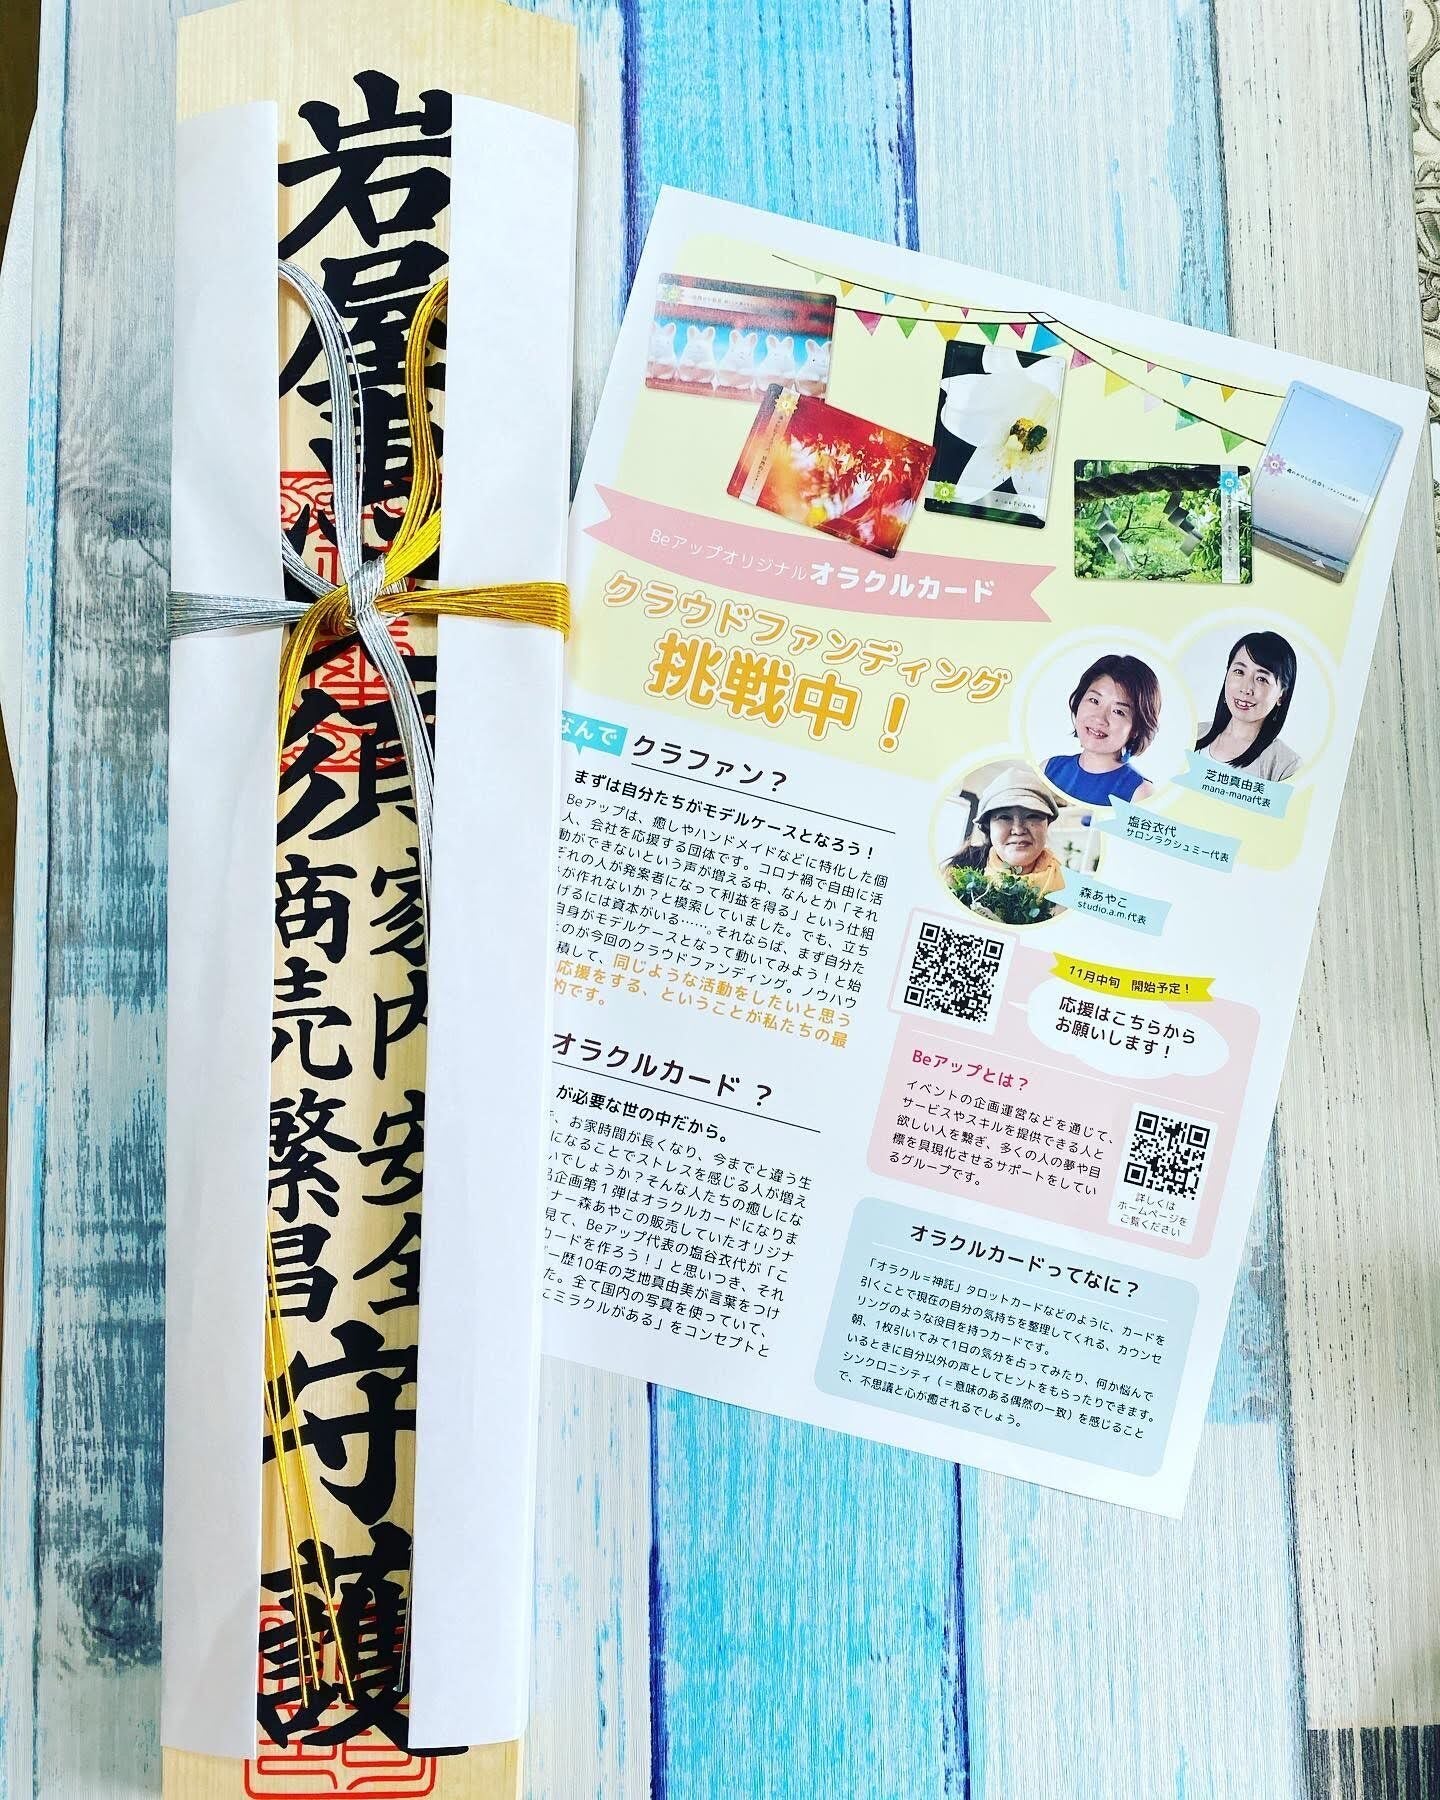 岩屋
須
家内安全
商売繁昌
守護
Beアップオリジナルオラクルカード
クラウドファンディング
挑戦中!
なんで クラファン?
まずは自分たちがモデルケースとなろう!
Beアップは、癒しやハンドメイドなどに特化した個
人、会社を応援する団体です。コロナ禍で自由に活
動ができないという声が増える中、なんとか「それ
ぞれの人が発案者になって利益を得る」という仕組
が作れないか?と模索していました。でも、立ち
げるには資本がいる……。それならば、まず自分た
自身がモデルケースとなって動いてみよう!と始
のが今回のクラウドファンディング。ノウハウ
積して、同じような活動をしたいと思う
応援をする、ということが私たちの最
的です。
オラクルカード?
が必要な世の中だから。
、お家時間が長くなり、今までと違う生
になることでストレスを感じる人が増え
いでしょうか?そんな人たちの癒しにな
企画第1弾はオラクルカードになりま
ナー森あやこの販売していたオリジナ
見て、Beアップ代表の塩谷衣代が「こ
カードを作ろう!」と思いつき、それ
ー歴10年の芝地真由美が言葉をつけ
た。全て国内の写真を使っていて、
こミラクルがある」をコンセプトと
芝地真由美
mana-mana代表
塩谷衣代
サロンラクシュミー代表
森あやこ
studio.a.m.代表
11月中旬 開始予定!
応援はこちらから
お願いします!
Beアップとは?
イベントの企画運営などを通じて、
サービスやスキルを提供できる人と
欲しい人を繋ぎ、多くの人の夢や目
標を具現化させるサポートをしてい
るグループです。
詳しくは
ホームページを
ご覧ください
オラクルカードってなに?
「オラクル=神託」タロットカードなどのように、カードを
引くことで現在の自分の気持ちを整理してくれる、カウンセ
リングのような役目を持つカードです。
朝、1枚引いてみて1日の気分を占ってみたり、何か悩んで
いるときに自分以外の声としてヒントをもらったりできます。
シンクロニシティ(=意味のある偶然の一致)を感じること
で、不思議と心が癒されるでしょう。